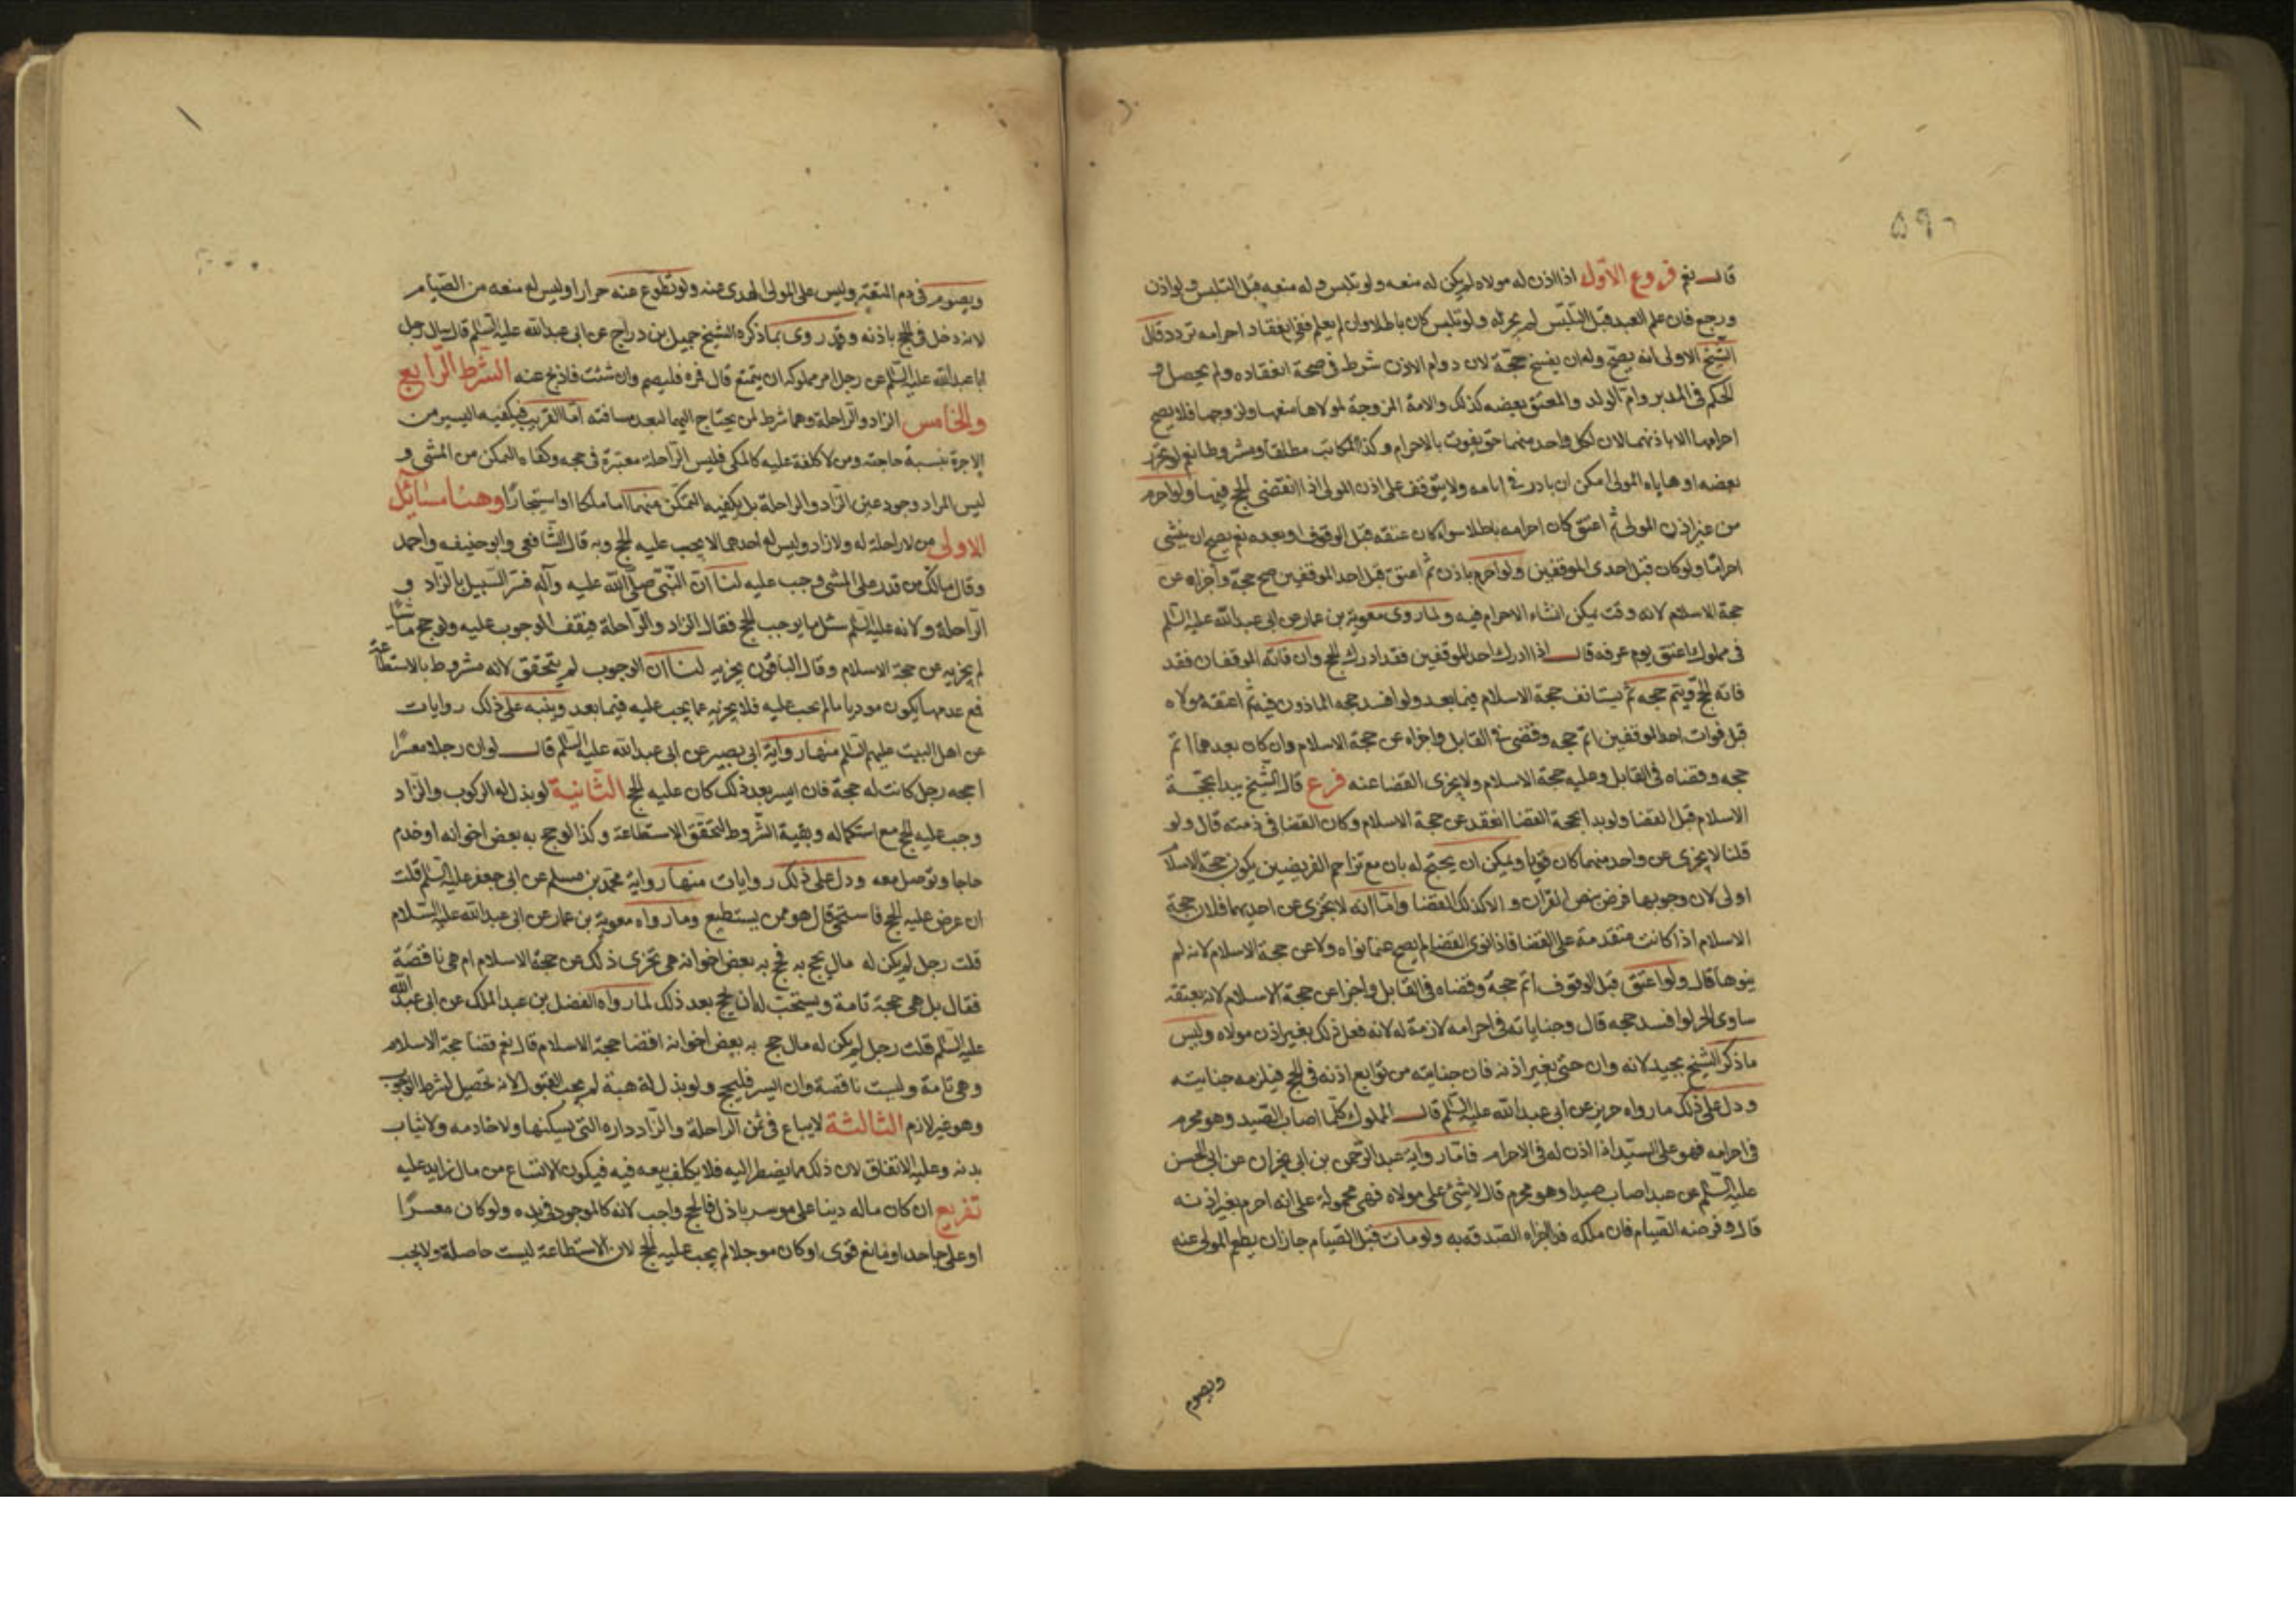 قال نعم فروع الاول اذا اذن له مولاه لم يكن له منعه ولو تلبس وله منعه قبل التلبس ولو اذن
ورجع فان علم العبد قبل التلبس لم يجز له ولو تلبس كان باطلا وان لم يعلم ففى انعقاد احرامه تردد قال
الشيخ الاولى انه يصح وله ان يفسخ حجه لان دوام الاذن شرط فى صحة انعقاده ولم يحصل و
الحكم فى المدبر وام الولد والمعتق بعضه كذلك والامة المزوجة لمولاها منعها ولزوجها فلا يصح
احرامها الا باذنهما لان لكل واحد منهما حق يفوت بالاحرام وكذا المكاتب مطلقا ومشروطا نعم لو تحرر
بعضه او هاياه المولى امكن ان بادر فى ايامه ولا يتوقف على اذن المولى اذا انقضى الحج فيها ولو احرم
من غير اذن المولى ثم اعتق كان احرامه باطلا سواء كان عتقه قبل الوقوف او بعده نعم يصح ان ينشى
احراما ولو كان قبل احدى الموقفين ولو احرم باذن ثم اعتق قبل احد الموقفين صح حجه واجزاه عن
حجة الاسلام لانه وقت يمكن انشاء الاحرام فيه ولما روى معوية بن عمار عن ابى عبدالله عليه السلم
فى مملوك اعتق يوم عرفه قال اذا ادرك احد الموقفين فقد ادرك الحج وان فاته الموقفان فقد
فاته الحج ويتم حجه ثم يستانف حجة الاسلام فيما بعد ولو افسد حجه الماذون فيه ثم اعتقه مولاه
قبل فوات احد الموقفين اتم حجه وقضى فى القابل واجزاه عن حجة الاسلام وان كان بعدهما اتم
حجه وقضاه فى القابل وعليه حجة الاسلام ولا يجزى القضا عنه فرع قال الشيخ يبدا بحجة
الاسلام قبل القضا ولو بدا بحجة القضا انعقد عن حجة الاسلام وكان القضا فى ذمته قال ولو
قلنا لا يجزى عن واحد منهما كان قويا ويمكن ان يحتج له بان مع تزاحم الفريضين يكون حجة الاسلام
اولى لان وجوبها فرض بنص القران ولا كذلك القضا واما انه لا يجزى عن احديهما فلان حجة
الاسلام اذا كانت متقدمة على القضا فاذا نوى القضا لم يصح عما نواه ولا عن حجة الاسلام لانه لم
ينوها قال ولو اعتق قبل الوقوف اتم حجه وقضاه فى القابل واجزا عن حجة الاسلام لانه بعتقه
ساوى الحر لو افسد حجه قال وجناياته فى احرامه لازمة له لانه فعل ذلك بغير اذن مولاه وليس
ما ذكر الشيخ بجيد لانه وان جنى بغير اذنه فان جنايته من توابع اذنه فى الحج فيلزمه جنايته
ودل على ذلك ما رواه حريز عن ابى عبدالله عليه السلم قال المملوك كلما اصاب الصيد وهو محرم
فى احرامه فهو على السيد اذا اذن له فى الاحرام فاما رواية عبدالرحمن بن ابى نجران عن ابى الحسن
عليه السلم عن عبد اصاب صيدا وهو محرم قال لا شئ على مولاه فهى محمولة على انه احرم بغير اذنه
قال وفرضه الصيام فان ملكه فاجزاه الصدقه به ولو مات قبل الصيام جاز ان يطعم المولى عنه
ويصوم
ويصوم فى دم المتعة وليس على المولى الهدى عنه ولو تطوع عنه جاز وليس له منعه من الصيام
لانه دخل فى الحج باذنه وقد روى بما ذكره الشيخ جميل بن دراج عن ابى عبدالله عليه السلم قال سال رجل
ابا عبدالله عليه السلم عن رجل امر مملوكه ان يتمتع قال فمره فليصم وان شئت فاذبح عنه الشرط الرابع
والخامس الزاد والراحلة وهما شرط لمن يحتاج اليهما لبعد مسافته اما القريب فيكفيه اليسير من
الاجرة بنسبة حاجته ومن لا كلفة عليه كالمكى فليس الراحلة معتبرة فى حجه وكفاه التمكن من المشى و
ليس المراد وجود عين الزاد والراحلة بل يكفيه التمكن منهما اما ملكا او استيجارا وهنا مسائل
الاولى من لا راحلة له ولا زاد وليس له احدهما لا يجب عليه الحج وبه قال الشافعى وابو حنيفه واحمد
وقال مالك من قدر على المشى وجب عليه لنا ان النبى صلى الله عليه وآله فسر السبيل بالزاد و
الراحلة ولانه عليه السلم سئل ما يوجب الحج فقال الزاد والراحلة فيقف الوجوب عليه ولو حج ماشيا
لم يجزيه عن حجة الاسلام وقال الباقون يجزيه لنا ان الوجوب لم يتحقق لانه مشروط بالاستطاعة
فمع عدمها يكون موديا ما لم يجب عليه فلا يجزيه عما يجب عليه فيما بعد وينبه على ذلك روايات
عن اهل البيت عليهم السلم منها رواية ابى بصير عن ابى عبدالله عليه السلم قال لو ان رجلا معسرا
احجه رجل كانت له حجة فان ايسر بعد ذلك كان عليه الحج الثانية لو بذل له الركوب والزاد
وجب عليه الحج مع استكماله وبقية الشروط لتحقق الاستطاعة وكذا لو حج به بعض اخوانه او خدم
حاجا وتوصل معه ودل على ذلك روايات منها رواية محمد بن مسلم عن ابى جعفر عليه السلم قلت
ان عرض عليه الحج فاستحى قال هو ممن يستطيع وما رواه معوية بن عمار عن ابى عبدالله عليه السلام
قلت رجل لم يكن له مال يحج به فحج به بعض اخوانه هى تجزى ذلك عن حجة الاسلام ام هى ناقصة
فقال بل هى حجة تامة ويستحب له ان يحج بعد ذلك لما رواه الفضل بن عبدالملك عن ابى عبدالله
عليه السلم قلت رجل لم يكن له مال حج به بعض اخوانه اقضا حجة الاسلام قال نعم قضا حجة الاسلام
وهى تامة وليست ناقصة وان ايسر فليحج ولو بذل له هبة لم يجب القبول لانه تحصيل لشرط الوجوب
وهو غير لازم الثالثة لا يباع فى ثمن الراحلة والزاد داره التى يسكنها ولا خادمه ولا ثياب
بدنه وعليه الاتفاق لان ذلك مما يضطر اليه فلا يكلف بيعه فيه فيكون الاتساع من مال زايد عليه
تفريع ان كان ماله دينا على موسر باذل فالحج واجب لانه كالموجود فى يده ولو كان معسرا
او على جاحد او مانع قوى او كان موجلا لم يجب عليه الحج لان الاستطاعة ليست حاصلة ولا يجب